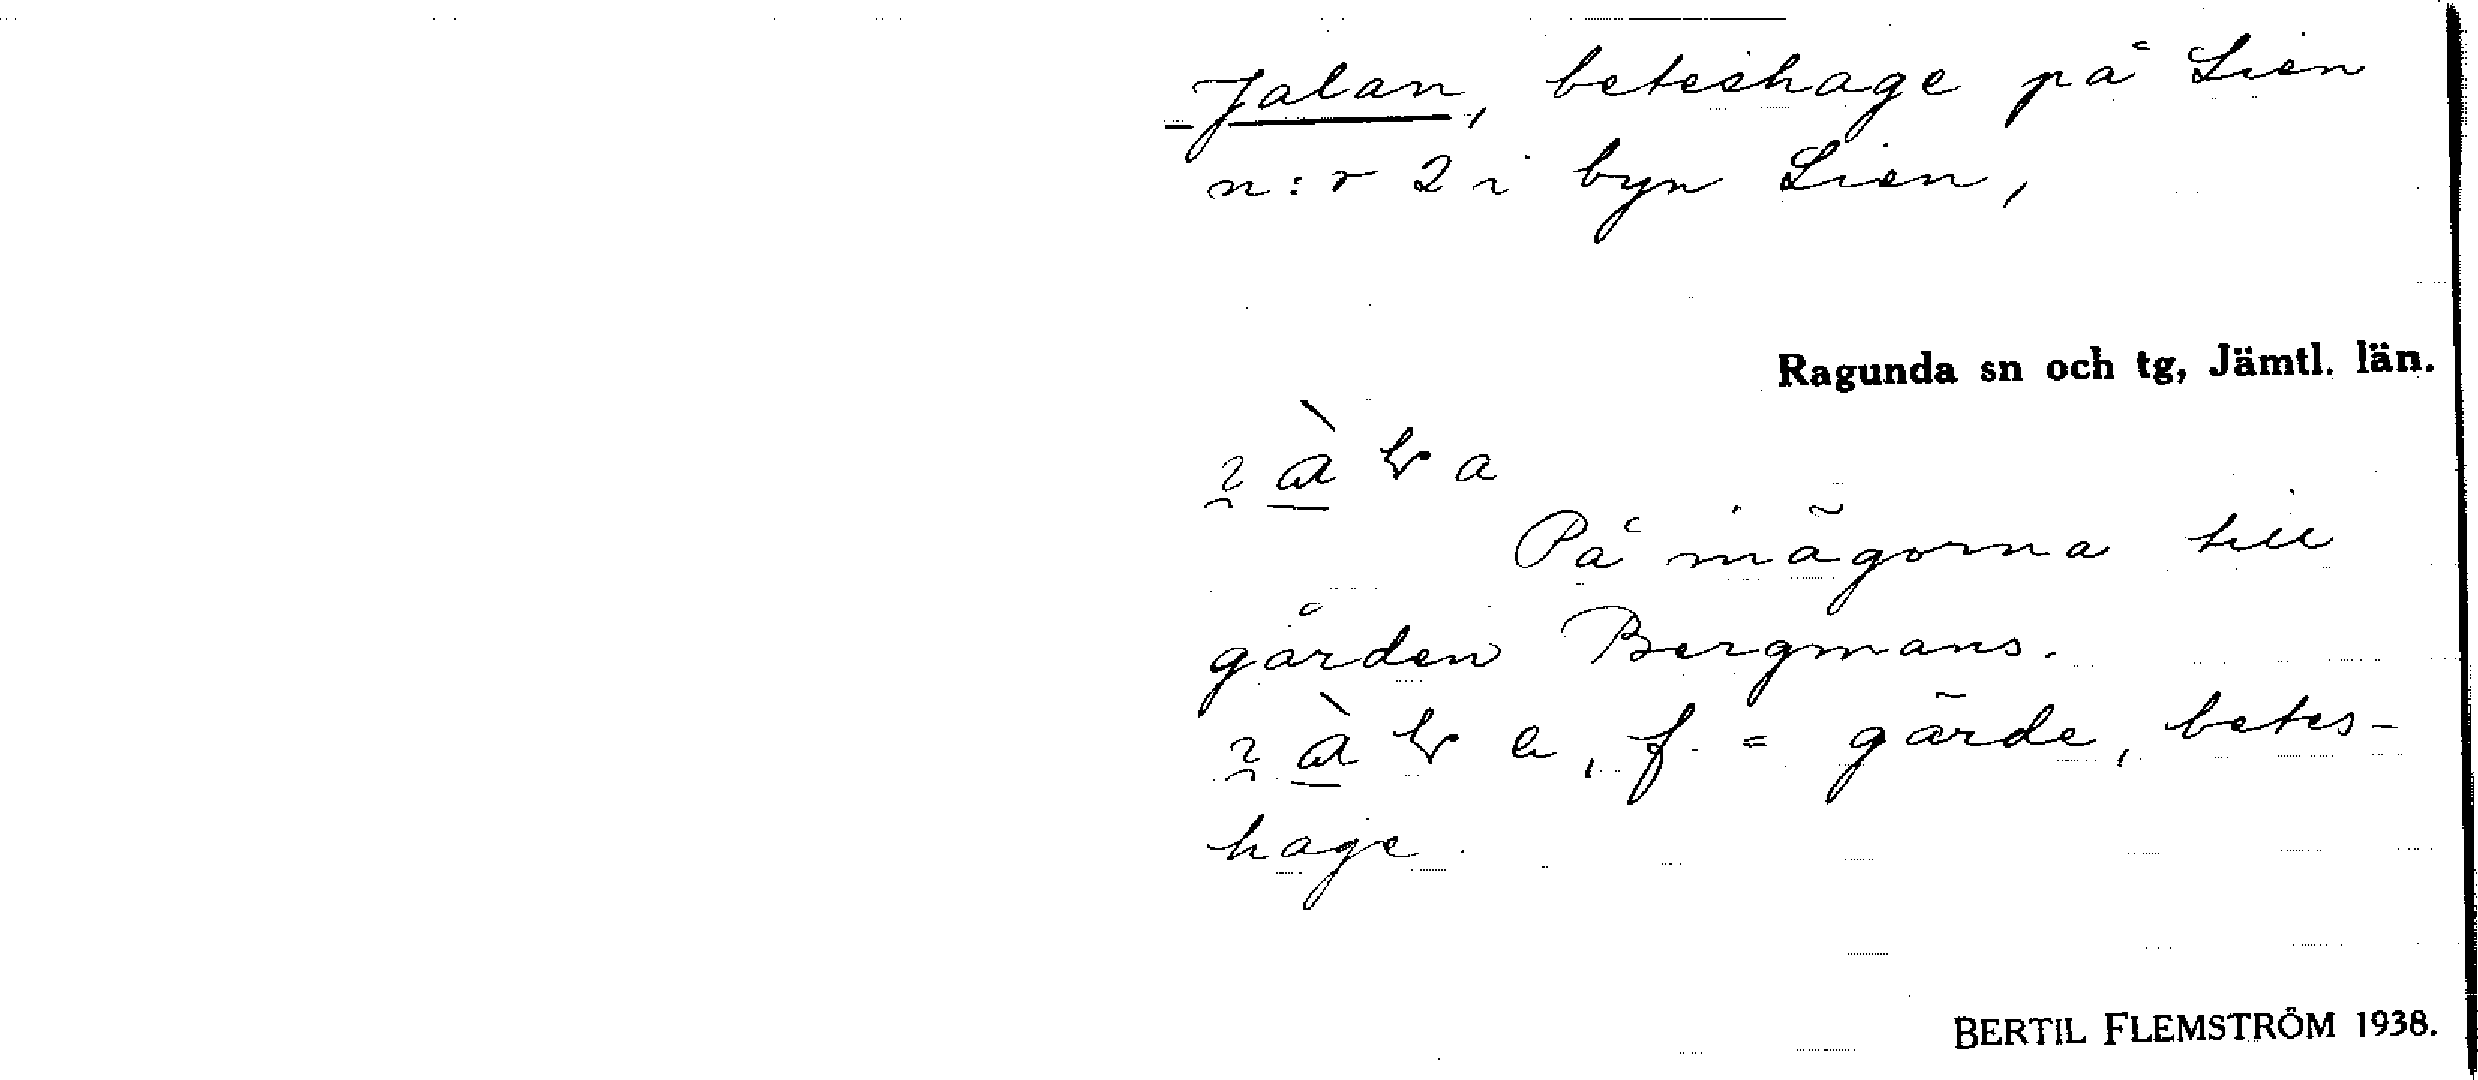 Jalan, beteshage på Lien
n:r 2 i byn Lien,
Ragunda sn och tg, Jämtl. län.
På inägorna till
gården Bergmans.
f. = gärde, betes-
hage.
BERTIL FLEMSTRÖM 1938.